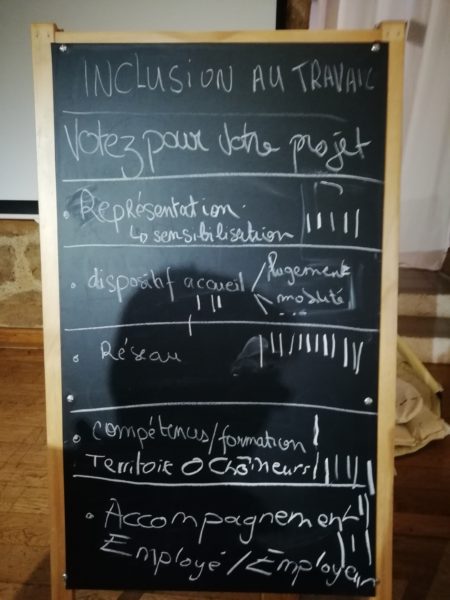 INCLUSION AU TRAVAIL
Votez pour votre projet
• Représentation.
↳ sensibilisation
• dispositif accueil / logement
mobilité
...
• Réseau
• compétences/formation
Territoire 0 Chômeurs
• Accompagnement
Employé / Employeur